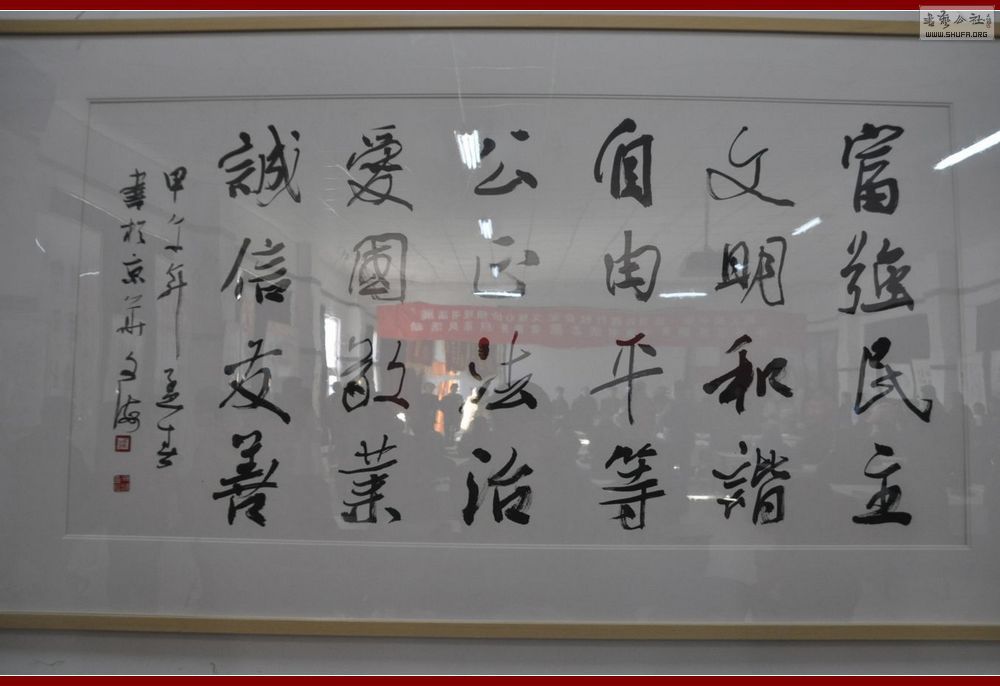 富強民主
文明和諧
自由平等
公正法治
愛國敬業
誠信友善
甲午年孟春
書於京華文海
书艺公社
WWW.SHUFA.ORG